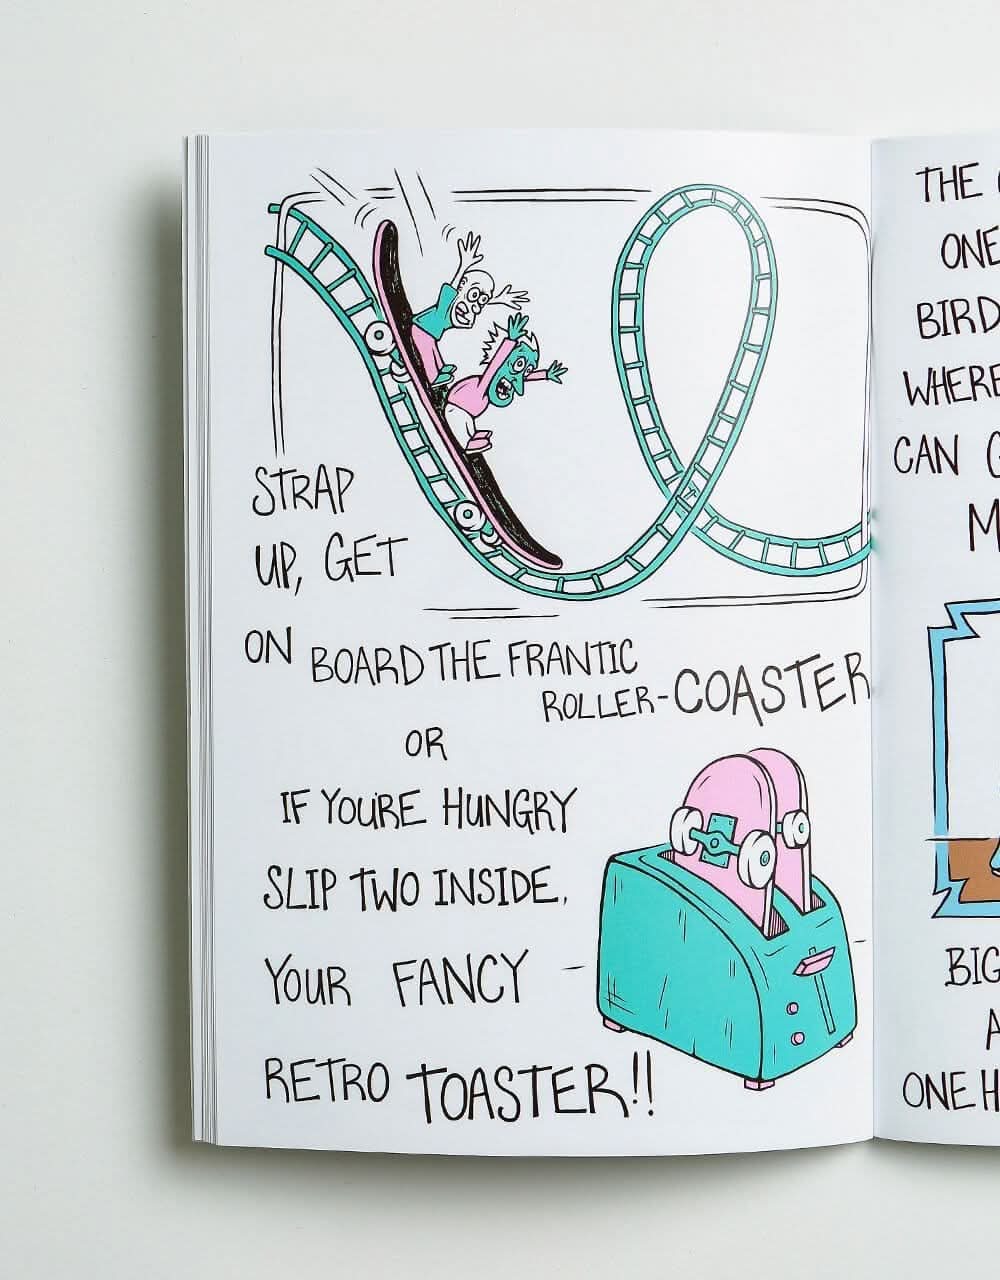 STRAP
UP, GET
ON BOARD THE FRANTIC
ROLLER-COASTER
OR
IF YOU'RE HUNGRY
SLIP TWO INSIDE,
YOUR FANCY
RETRO TOASTER!!
THE
ONE
BIRD
WHERE
CAN
BIG
ONE